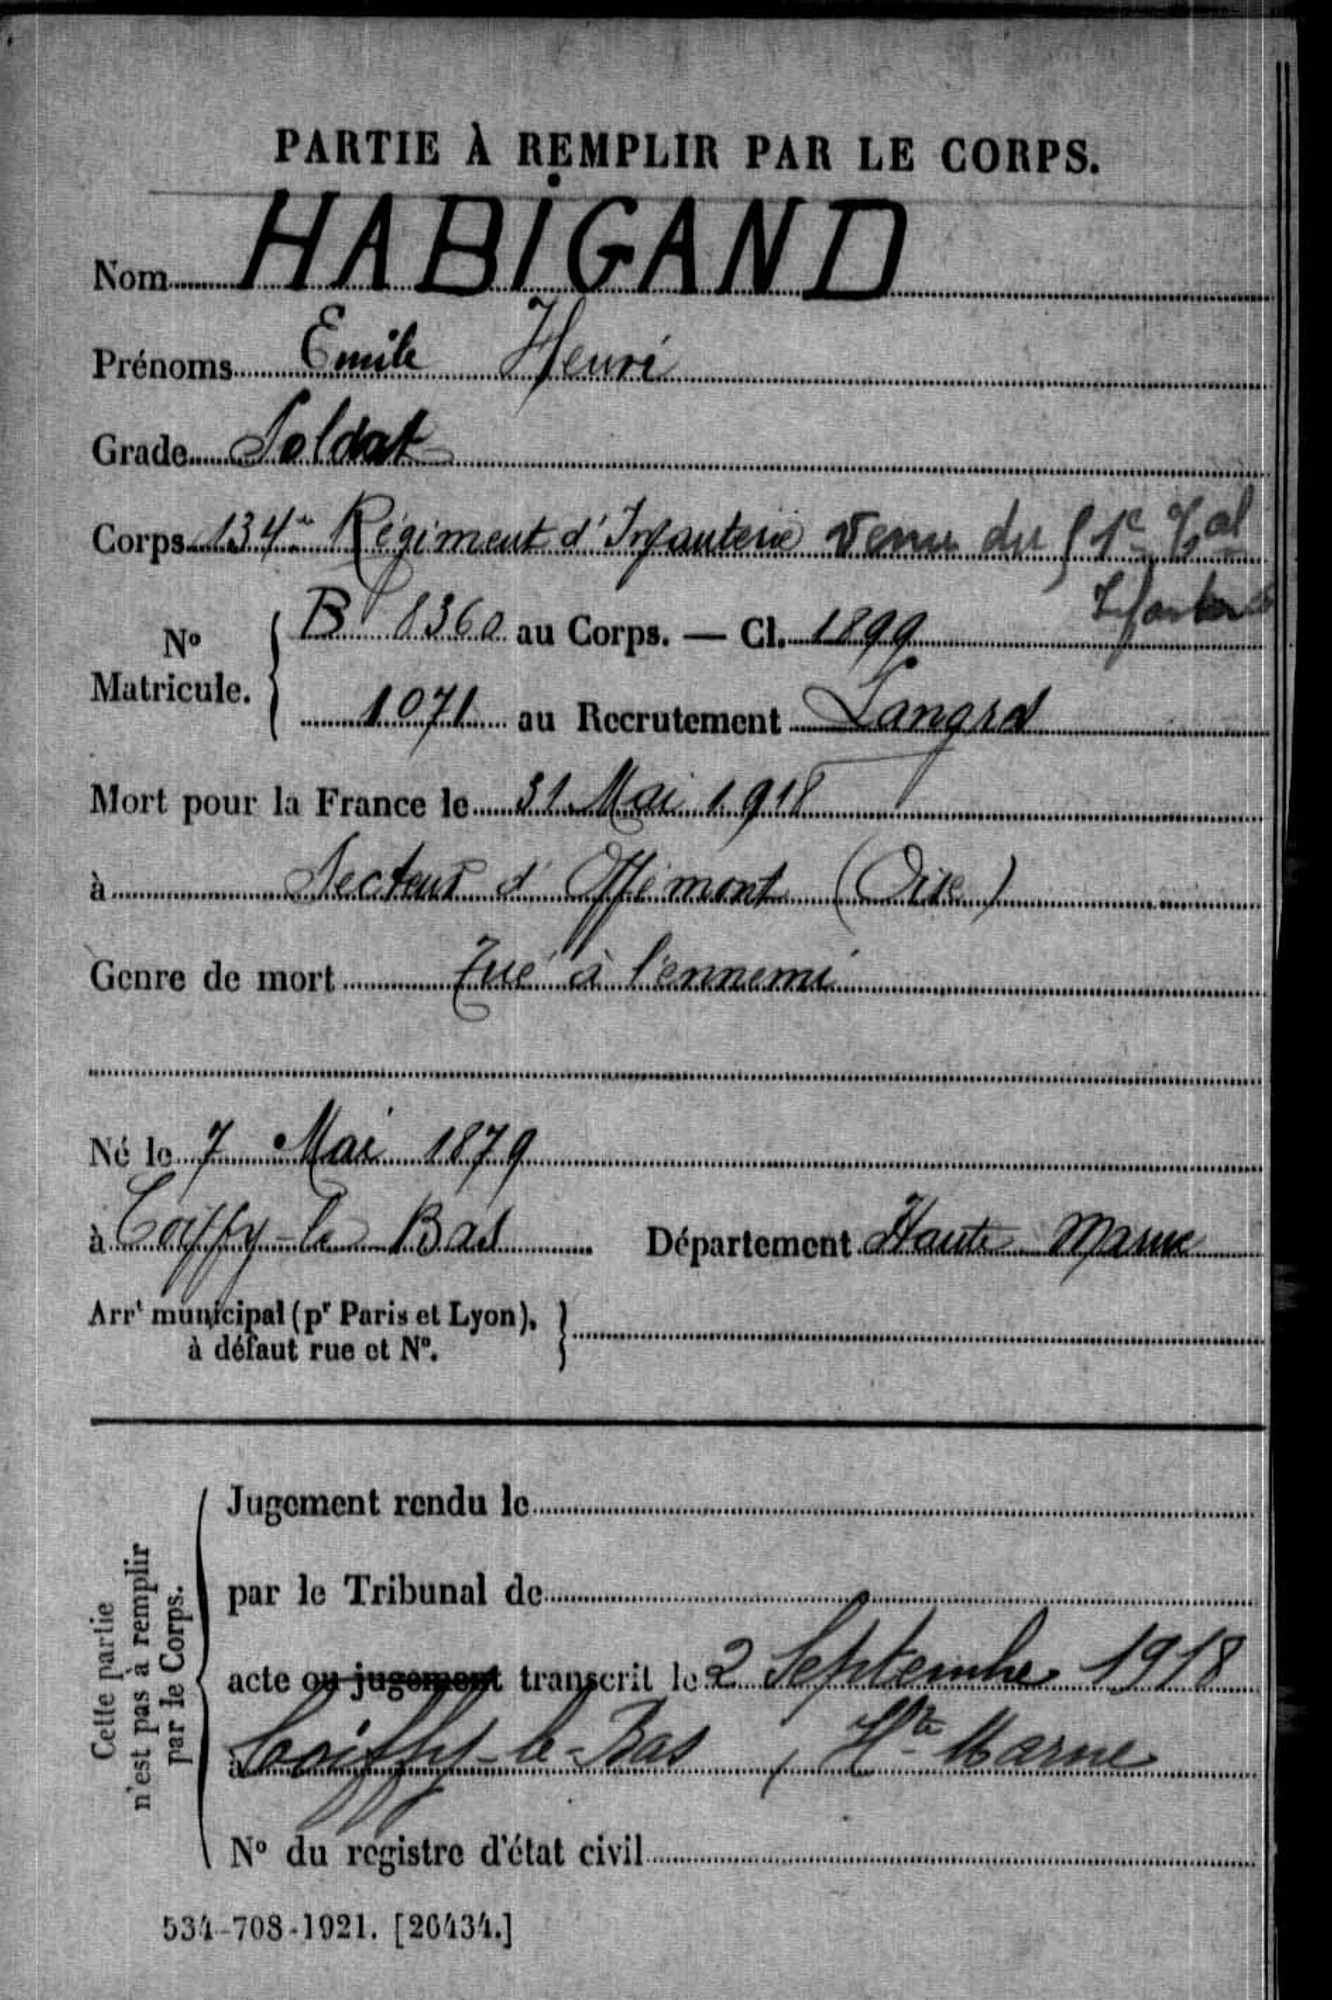 PARTIE À REMPLIR PAR LE CORPS.
Nom HABIGAND
Prénoms Emile Henri
Grade Soldat
Corps 134e Régiment d'Infanterie venu du 51e Tal
Infanterie
No Matricule. B 8360 au Corps. — Cl. 1899
1071 au Recrutement Langres
Mort pour la France le 31 Mai 1918
à Secteur d'Offémont (Oise)
Genre de mort Tué à l'ennemi
Né le 7 Mai 1879
à Coiffy-le Bas Département Haute Marne
Arrt municipal (pr Paris et Lyon),
à défaut rue et No.
Cette partie
n'est pas à remplir
par le Corps.
Jugement rendu le
par le Tribunal de
acte ou jugement transcrit le 2 Septembre 1918
à Coiffy-le-Bas, Hte Marne
No du registre d'état civil
534-708-1921. [26434.]